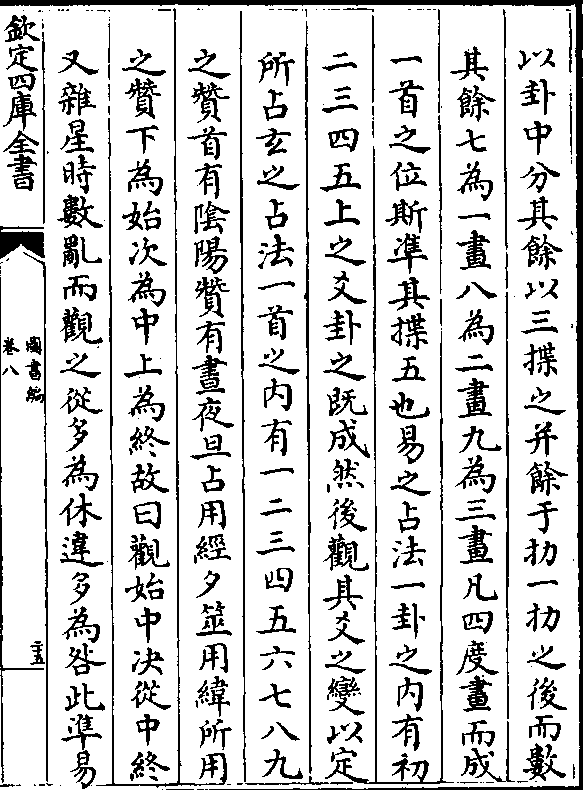 以卦中分其餘以三揲之并餘于扐一扐之後而數
其餘七為一畫八為二畫九為三畫凡四度畫而成
一首之位斯準其揲五也易之占法一卦之内有初
二三四五上之爻卦之既成然後觀其爻之變以定
所占玄之占法一首之内有一二三四五六七八九
之贊首有陰陽贊有晝夜旦占用經夕筮用緯所用
之贊下為始次為中上為終故曰觀始中決從中終
又雜星時數亂而觀之從多為休違多為咎此準易
欽定四庫全書
圖書編
卷八
二五